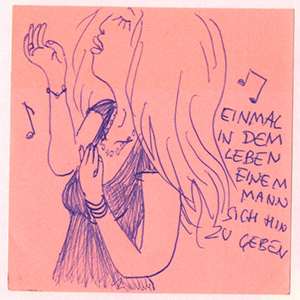 EINMAL
IN DEM
LEBEN
EINEM
MANN
SICH HIN
ZU GEBEN